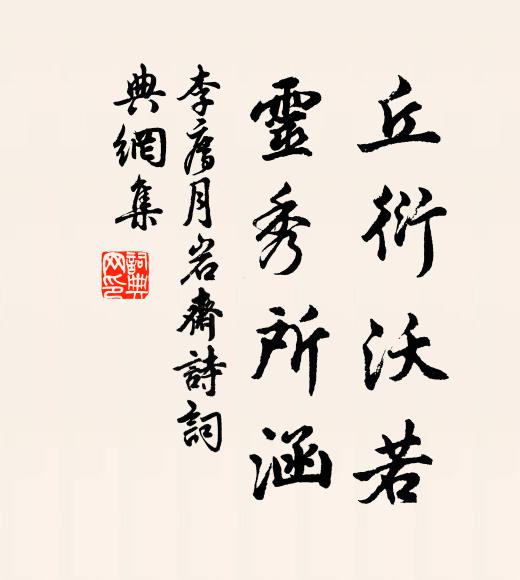 丘衍沃若
靈秀所涵
李廌月岩齋詩詞
典網集
詞典網印